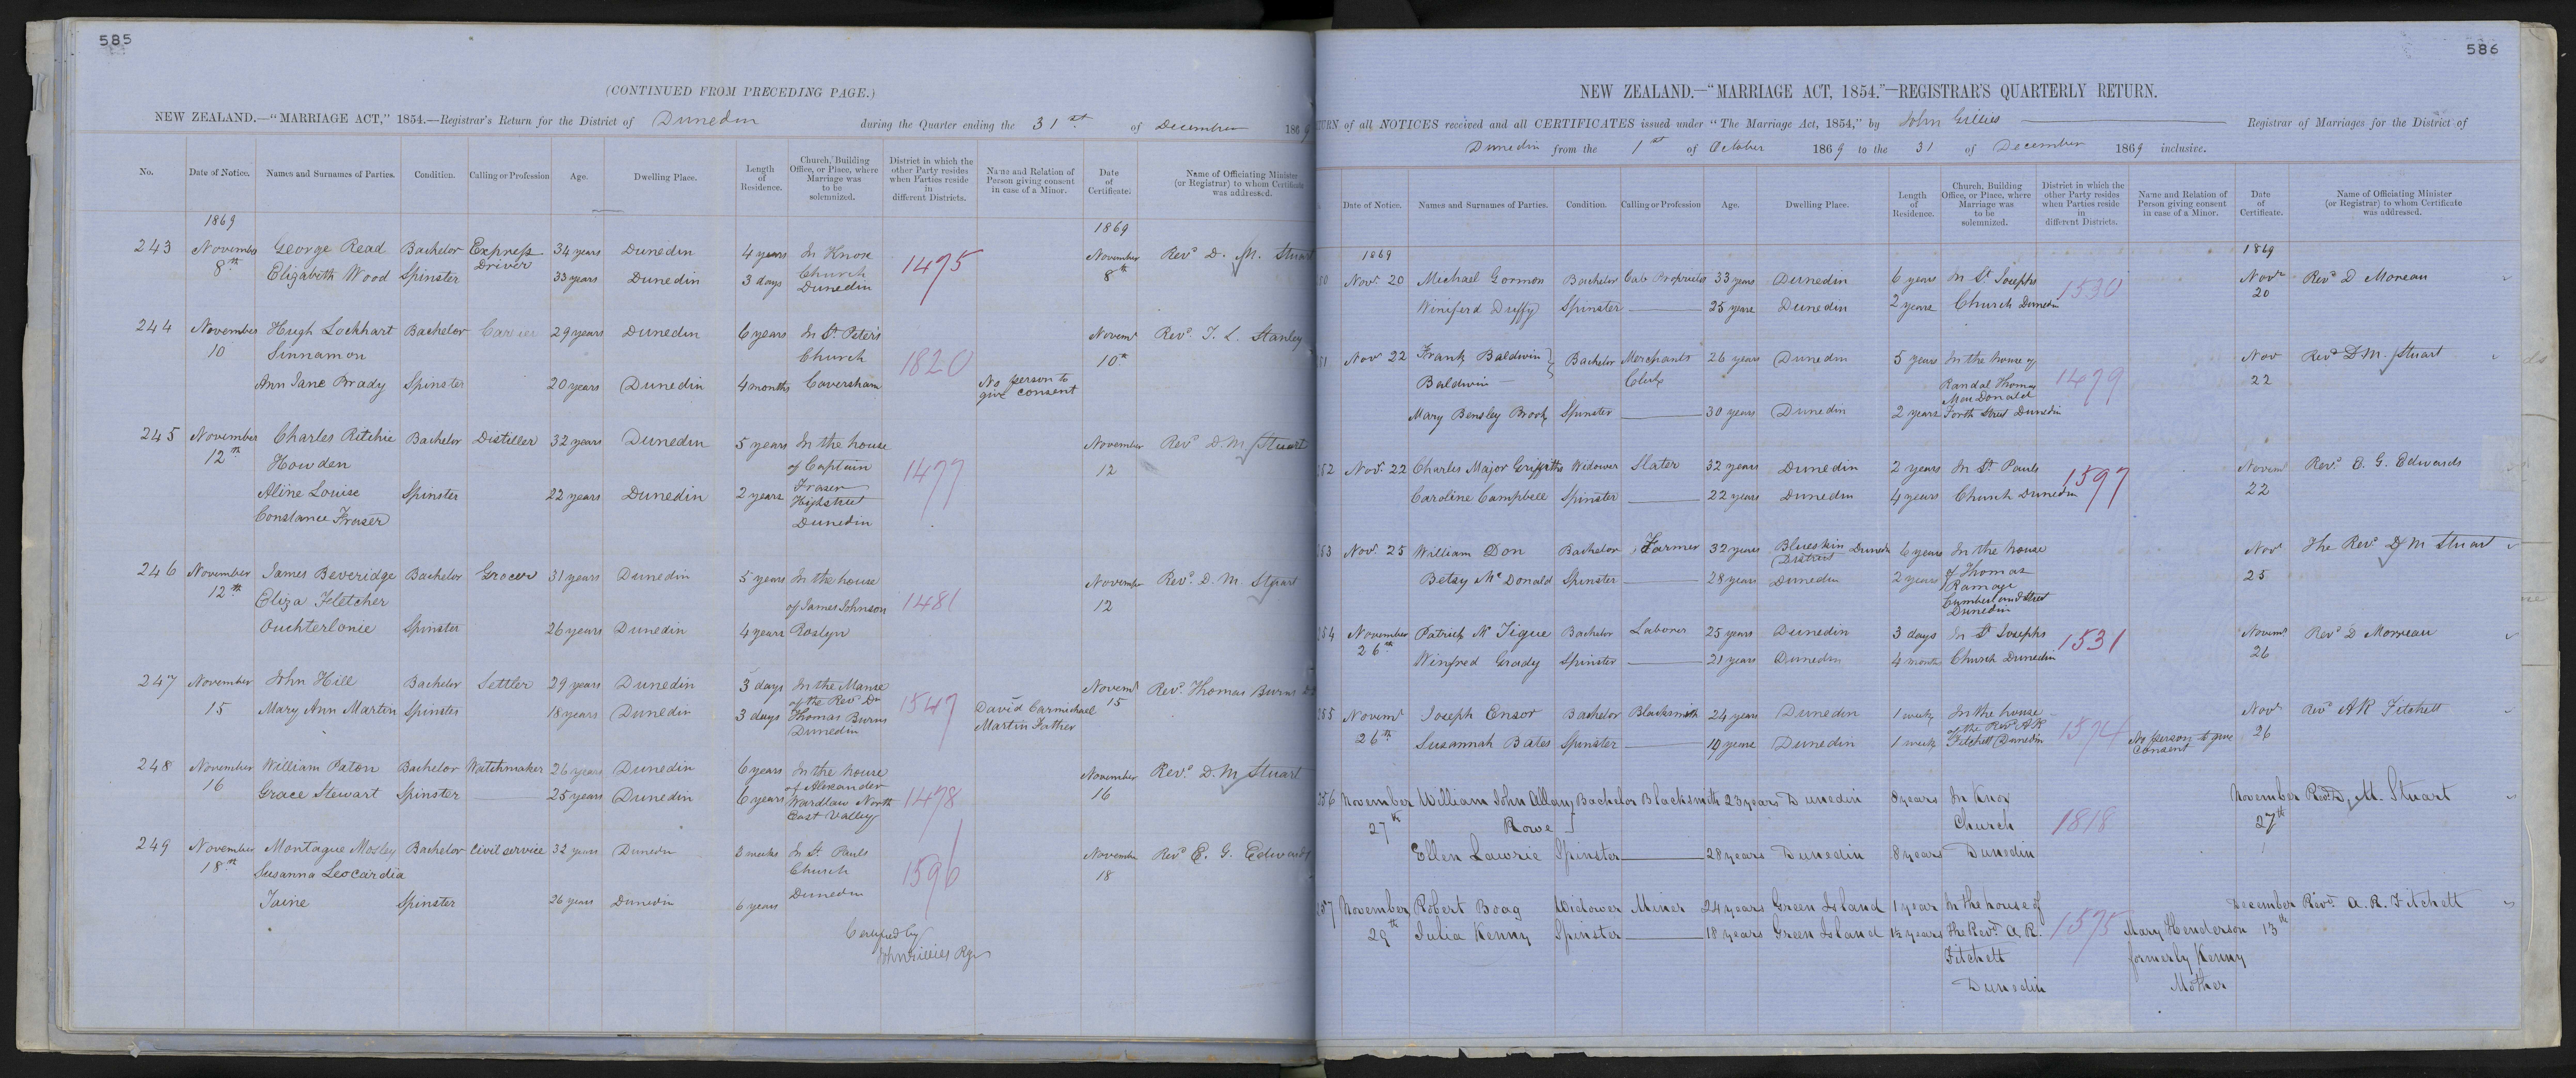 585
(CONTINUED FROM PRECEDING PAGE.)
NEW ZEALAND.—"MARRIAGE ACT," 1854.—Registrar's Return for the District of Dunedin during the Quarter ending the 31st of December 1869
No. Date of Notice. Names and Surnames of Parties. Condition. Calling or Profession Age. Dwelling Place. Length of Residence. Church, Building Office, or Place, where Marriage was to be solemnized. District in which the other Party resides when Parties reside in different Districts. Name and Relation of Person giving consent in case of a Minor. Date of Certificate. Name of Officiating Minister (or Registrar) to whom Certificate was addressed.
1869 1869
243 November George Read Bachelor Express Driver 34 years Dunedin 4 years In Knox 1475 November Revd D. M. Stuart
8th Elizabeth Wood Spinster 33 years Dunedin 3 days Church Dunedin 8th
244 November Hugh Lockhart Bachelor Carrier 29 years Dunedin 6 years In St Peter's Novemr Revd T. L. Stanley
10 Sinnamon Church 1820 10th
Ann Jane Brady Spinster 20 years Dunedin 4 months Caversham No person to give consent
245 November Charles Ritchie Bachelor Distiller 32 years Dunedin 5 years In the house November Revd D. M. Stuart
12th Howden of Captain 1477 12
Aline Louise Spinster 22 years Dunedin 2 years Fraser High street
Constance Fraser Dunedin
246 November James Beveridge Bachelor Grocer 31 years Dunedin 5 years In the house November Revd D. M. Stuart
12th Eliza Fletcher of James Johnson 1481 12
Ouchterlonie Spinster 26 years Dunedin 4 years Roslyn
247 November John Hill Bachelor Settler 29 years Dunedin 3 days In the Manse of the Revd Dr 1547 Novemr Revd Thomas Burns
15 Mary Ann Martin Spinster 18 years Dunedin 3 days Thomas Burns Dunedin David Carmichael Martin Father 15
248 November William Paton Bachelor Watchmaker 26 years Dunedin 6 years In the house of Alexander November Revd D. M. Stuart
16 Grace Stewart Spinster 25 years Dunedin 6 years Wardlaw North East Valley 1478 16
249 November Montague Mosley Bachelor Civil service 32 years Dunedin 2 weeks In St. Pauls November Revd E. G. Edwards
18th Susanna Leocardia Church 1596 18
Jaine Spinster 26 years Dunedin 6 years Dunedin
Certified by
John Gillies Rgr
586
NEW ZEALAND.—"MARRIAGE ACT, 1854."—REGISTRAR'S QUARTERLY RETURN.
TURN of all NOTICES received and all CERTIFICATES issued under "The Marriage Act, 1854," by John Gillies Registrar of Marriages for the District of
Dunedin from the 1st of October 1869 to the 31 of December 1869 inclusive.
Date of Notice. Names and Surnames of Parties. Condition. Calling or Profession Age. Dwelling Place. Length of Residence. Church, Building Office, or Place, where Marriage was to be solemnized. District in which the other Party resides when Parties reside in different Districts. Name and Relation of Person giving consent in case of a Minor. Date of Certificate. Name of Officiating Minister (or Registrar) to whom Certificate was addressed.
1869 1869
50 Novr 20 Michael Gormon Bachelor Cab Proprietor 33 years Dunedin 6 years In St Josephs 1530 Novr 20 Revd D Moreau
Winifird Duffy Spinster 25 years Dunedin 2 years Church Dunedin
51 Novr 22 Frank Baldwin Bachelor Merchants 26 years Dunedin 5 years In the house of Nov Revd D. M. Stuart
Baldwin Clerk Randal Thomas MacDonald 1479 22
Mary Bensley Brook Spinster 30 years Dunedin 2 years Forth Street Dunedin
252 Novr 22 Charles Major Griffiths Widower Slater 32 years Dunedin 2 years In St Pauls 1597 Novemr Revd E. G. Edwards
Caroline Campbell Spinster 22 years Dunedin 4 years Church Dunedin 22
253 Novr 25 William Don Bachelor Farmer 32 years Blueskin District Dunedin 6 years In the house Novr The Revd D M Stuart
Betsy McDonald Spinster 28 years Dunedin 2 years of Thomas Ramage 25
Cumberland Street Dunedin
254 November Patrick McTigue Bachelor Laborer 25 years Dunedin 3 days In St Josephs 1531 Novemr Revd D Moreau
26th Winfred Grady Spinster 21 years Dunedin 4 months Church Dunedin 26
255 Novemr Joseph Ensor Bachelor Blacksmith 24 years Dunedin 1 week In the house of the Revd A R 1574 Novr Revd A R Fitchett
26th Susannah Bates Spinster 19 years Dunedin 1 week Fitchett Dunedin No person to give consent 26
256 November William John Allany Bachelor Blacksmith 23 years Dunedin 8 years In Knox November Revd D. M. Stuart
27th Rowe Church 1818 27th
Ellen Lawrie Spinster 28 years Dunedin 8 years Dunedin
257 November Robert Boag Widower Miner 24 years Green Island 1 year In the house of 1575 December Revd A. R. Fitchett
29th Julia Kenny Spinster 18 years Green Island 1½ years the Revd A. R. Mary Henderson 13th
Fitchett formerly Kenny
Dunedin Mother